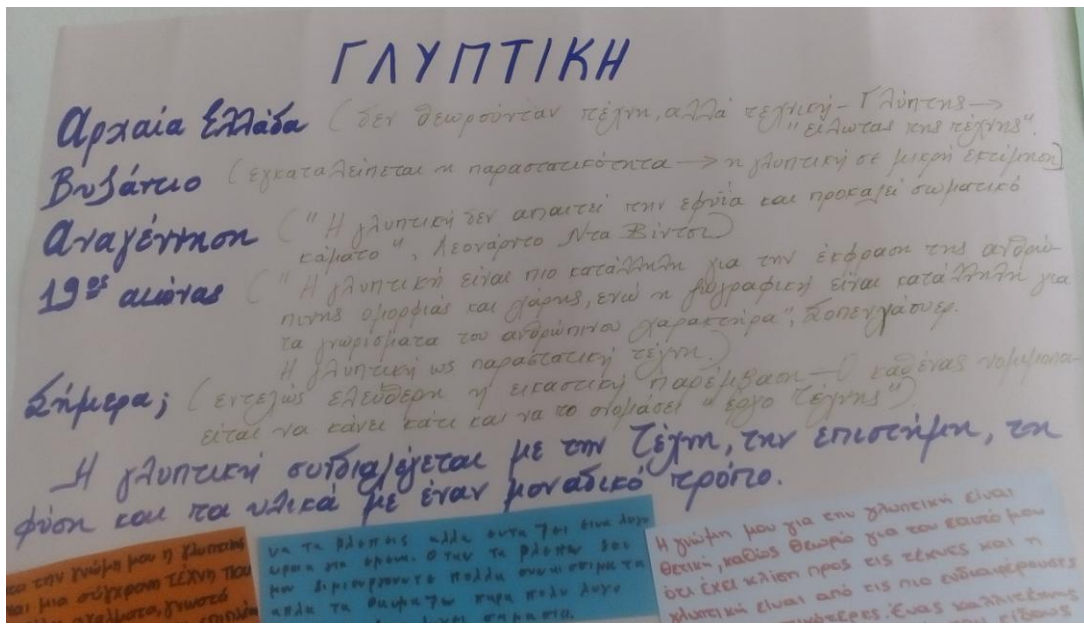 ΓΛΥΠΤΙΚΗ
Αρχαία Ελλάδα (δεν θεωρούνταν τέχνη, αλλά τεχνική - Γλύπτης →
"είλωτας της τέχνης".
Βυζάντιο (εγκαταλείπεται η παραστατικότητα → η γλυπτική σε μικρή εκτίμηση)
Αναγέννηση ("Η γλυπτική δεν απαιτεί την εφυΐα και προκαλεί σωματικό
κάματο", Λεονάρντο Ντα Βίντσι)
19ος αιώνας ("Η γλυπτική είναι πιο κατάλληλη για την έκφραση της ανθρώ-
πινης ομορφιάς και χάρης, ενώ η ζωγραφική είναι κατάλληλη για
τα γνωρίσματα του ανθρώπινου χαρακτήρα", Σοπενχάουερ.
Η γλυπτική ως παραστατική τέχνη.)
Σήμερα; (εντελώς ελεύθερη η εικαστική παρέμβαση - Ο καθένας νομιμοποι-
είται να κάνει κάτι και να το ονομάσει "έργο τέχνης").
Η γλυπτική συνδιαλέγεται με την τέχνη, την επιστήμη, τη
φύση και τα υλικά με έναν μοναδικό τρόπο.
την γνώμη μου η γλυπτική
μια σύγχρονη τέχνη που
αγάλματα, γνωστό
να τα βλέπεις αλλα αυτα
ωραια για εμενα. Οταν τα βλεπω
μου δημιουργουντε πολλα συναισθιματα
απλα τα θαυμαζω παρα πολυ λογο
σημασια.
Η γνώμη μου για την γλυπτική είναι
θετική, καθώς θεωρώ για τον εαυτό μου
ότι έχει κλίση προς τις τέχνες και η
γλυπτική είναι από τις πιο ενδιαφέρουσες
Ένας καλλιτέχνης
είδους